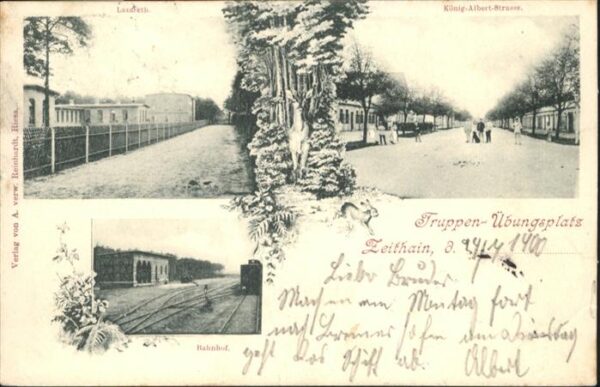 Lazareth.
König-Albert-Strasse.
Verlag von A. verw. Reinhardt, Riesa.
Truppen-Übungsplatz
Zeithain, d. 1900
Bahnhof.
Lieber Bruder
Machen am Montag fort
nach am
geht das Schiff ab. Albert